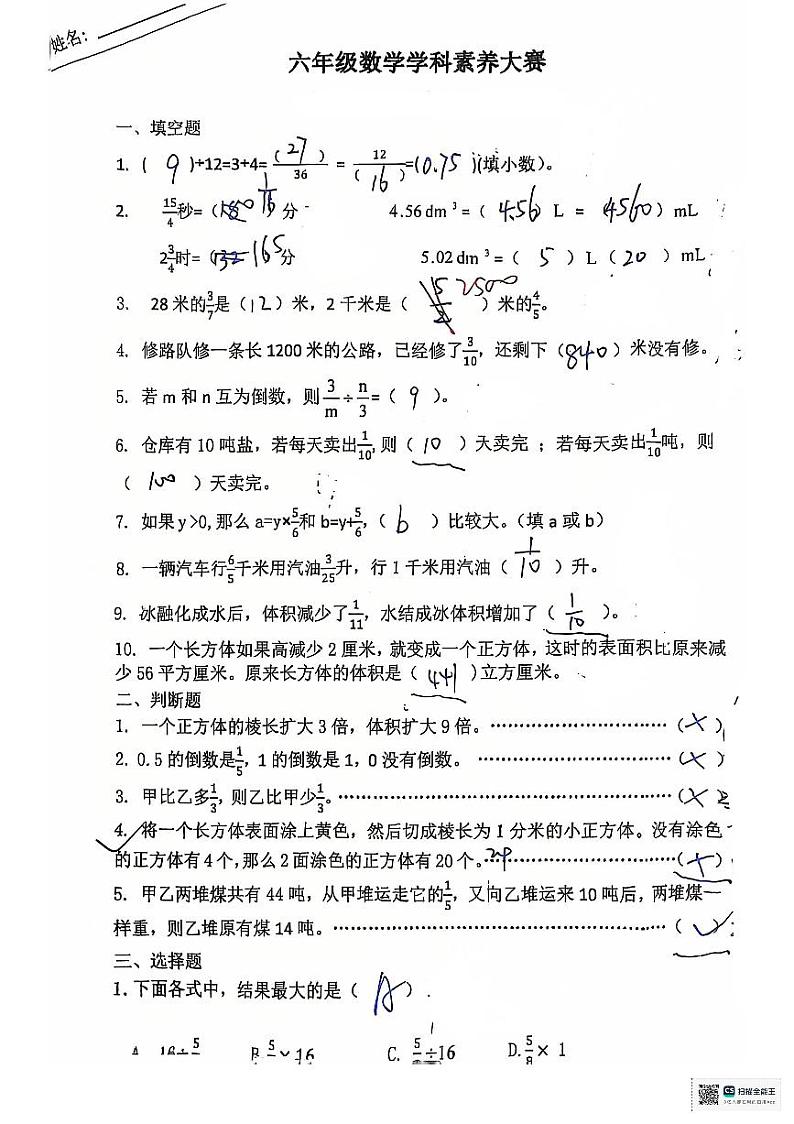 姓名：
六年级数学学科素养大赛
一、填空题
1. ( 9 )÷12=3÷4= (27)/36 = 12/(16) =(0.75)(填小数)。
2. 15/4秒=( 1/16 )分 4.56 dm³=( 4.56 ) L = ( 4560 ) mL
2 3/4时=( 165 )分 5.02 dm³=( 5 ) L ( 20 ) mL
3. 28米的3/7是(12)米，2千米是( 5/2 2500 )米的4/5。
4. 修路队修一条长1200米的公路，已经修了3/10，还剩下(840)米没有修。
5. 若m和n互为倒数，则3/m÷n/3=( 9 )。
6. 仓库有10吨盐，若每天卖出1/10,则( 10 )天卖完；若每天卖出1/10吨，则
( 100 )天卖完。
7. 如果y>0,那么a=y×5/6和b=y÷5/6，( b )比较大。(填a或b)
8. 一辆汽车行6/5千米用汽油3/25升，行1千米用汽油( 1/10 )升。
9. 冰融化成水后，体积减少了1/11，水结成冰体积增加了( 1/10 )。
10. 一个长方体如果高减少2厘米，就变成一个正方体，这时的表面积比原来减
少56平方厘米。原来长方体的体积是( 441 )立方厘米。
二、判断题
1. 一个正方体的棱长扩大3倍，体积扩大9倍。…………………………(×)
2. 0.5的倒数是1/5，1的倒数是1，0没有倒数。…………………………(×)
3. 甲比乙多1/3,则乙比甲少1/3。…………………………(×)
4. 将一个长方体表面涂上黄色，然后切成棱长为1分米的小正方体。没有涂色
的正方体有4个,那么2面涂色的正方体有20个。…………………………(×)
5. 甲乙两堆煤共有44吨，从甲堆运走它的1/5，又向乙堆运来10吨后，两堆煤一
样重，则乙堆原有煤14吨。…………………………(√)
三、选择题
1.下面各式中，结果最大的是( A )
A. 16÷5 B. 5×16 C. 5÷16 D. 5/8×1
扫描全能王